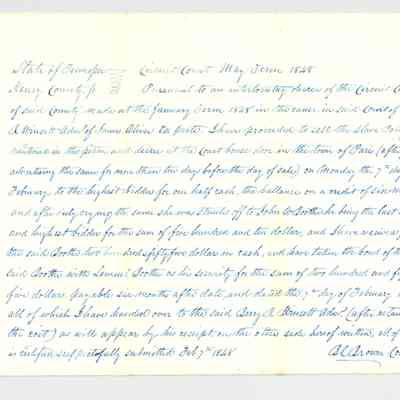 State of Tennessee Circuit Court May Term 1848
Henry County Pursuant to an interlocutory decree of the Circuit C
of said County made at the January Term 1848 in the cause in said Court of
A Admr of Oliver Ex parte I have proceeded to sell the slave
mentioned in the petn and decree at the Court house door in the town of Paris (after
advertising the same for more than ten days before the day of sale) on Monday the 7th day
February to the highest bidder for one half cash, the ballance on a credit of six mo
and after duly crying the same she was struck off to John W Boothe he being the last
and highest bidder for the sum of five hundred and ten dollars, and I have receiv
the said Boothe two hundred & fifty five dollars in cash, and have taken the bond of th
said Boothe with Lemuel Boothe as his security for the sum of two hundred and f
five dollars payable six months after date and dated the 7th day of February
all of which I have handed over to the said Berry Admr (after
the cost) as will appear by his receipt on the other side hereof written, all of
is respectfully submitted Feb 7th 1848 Brown